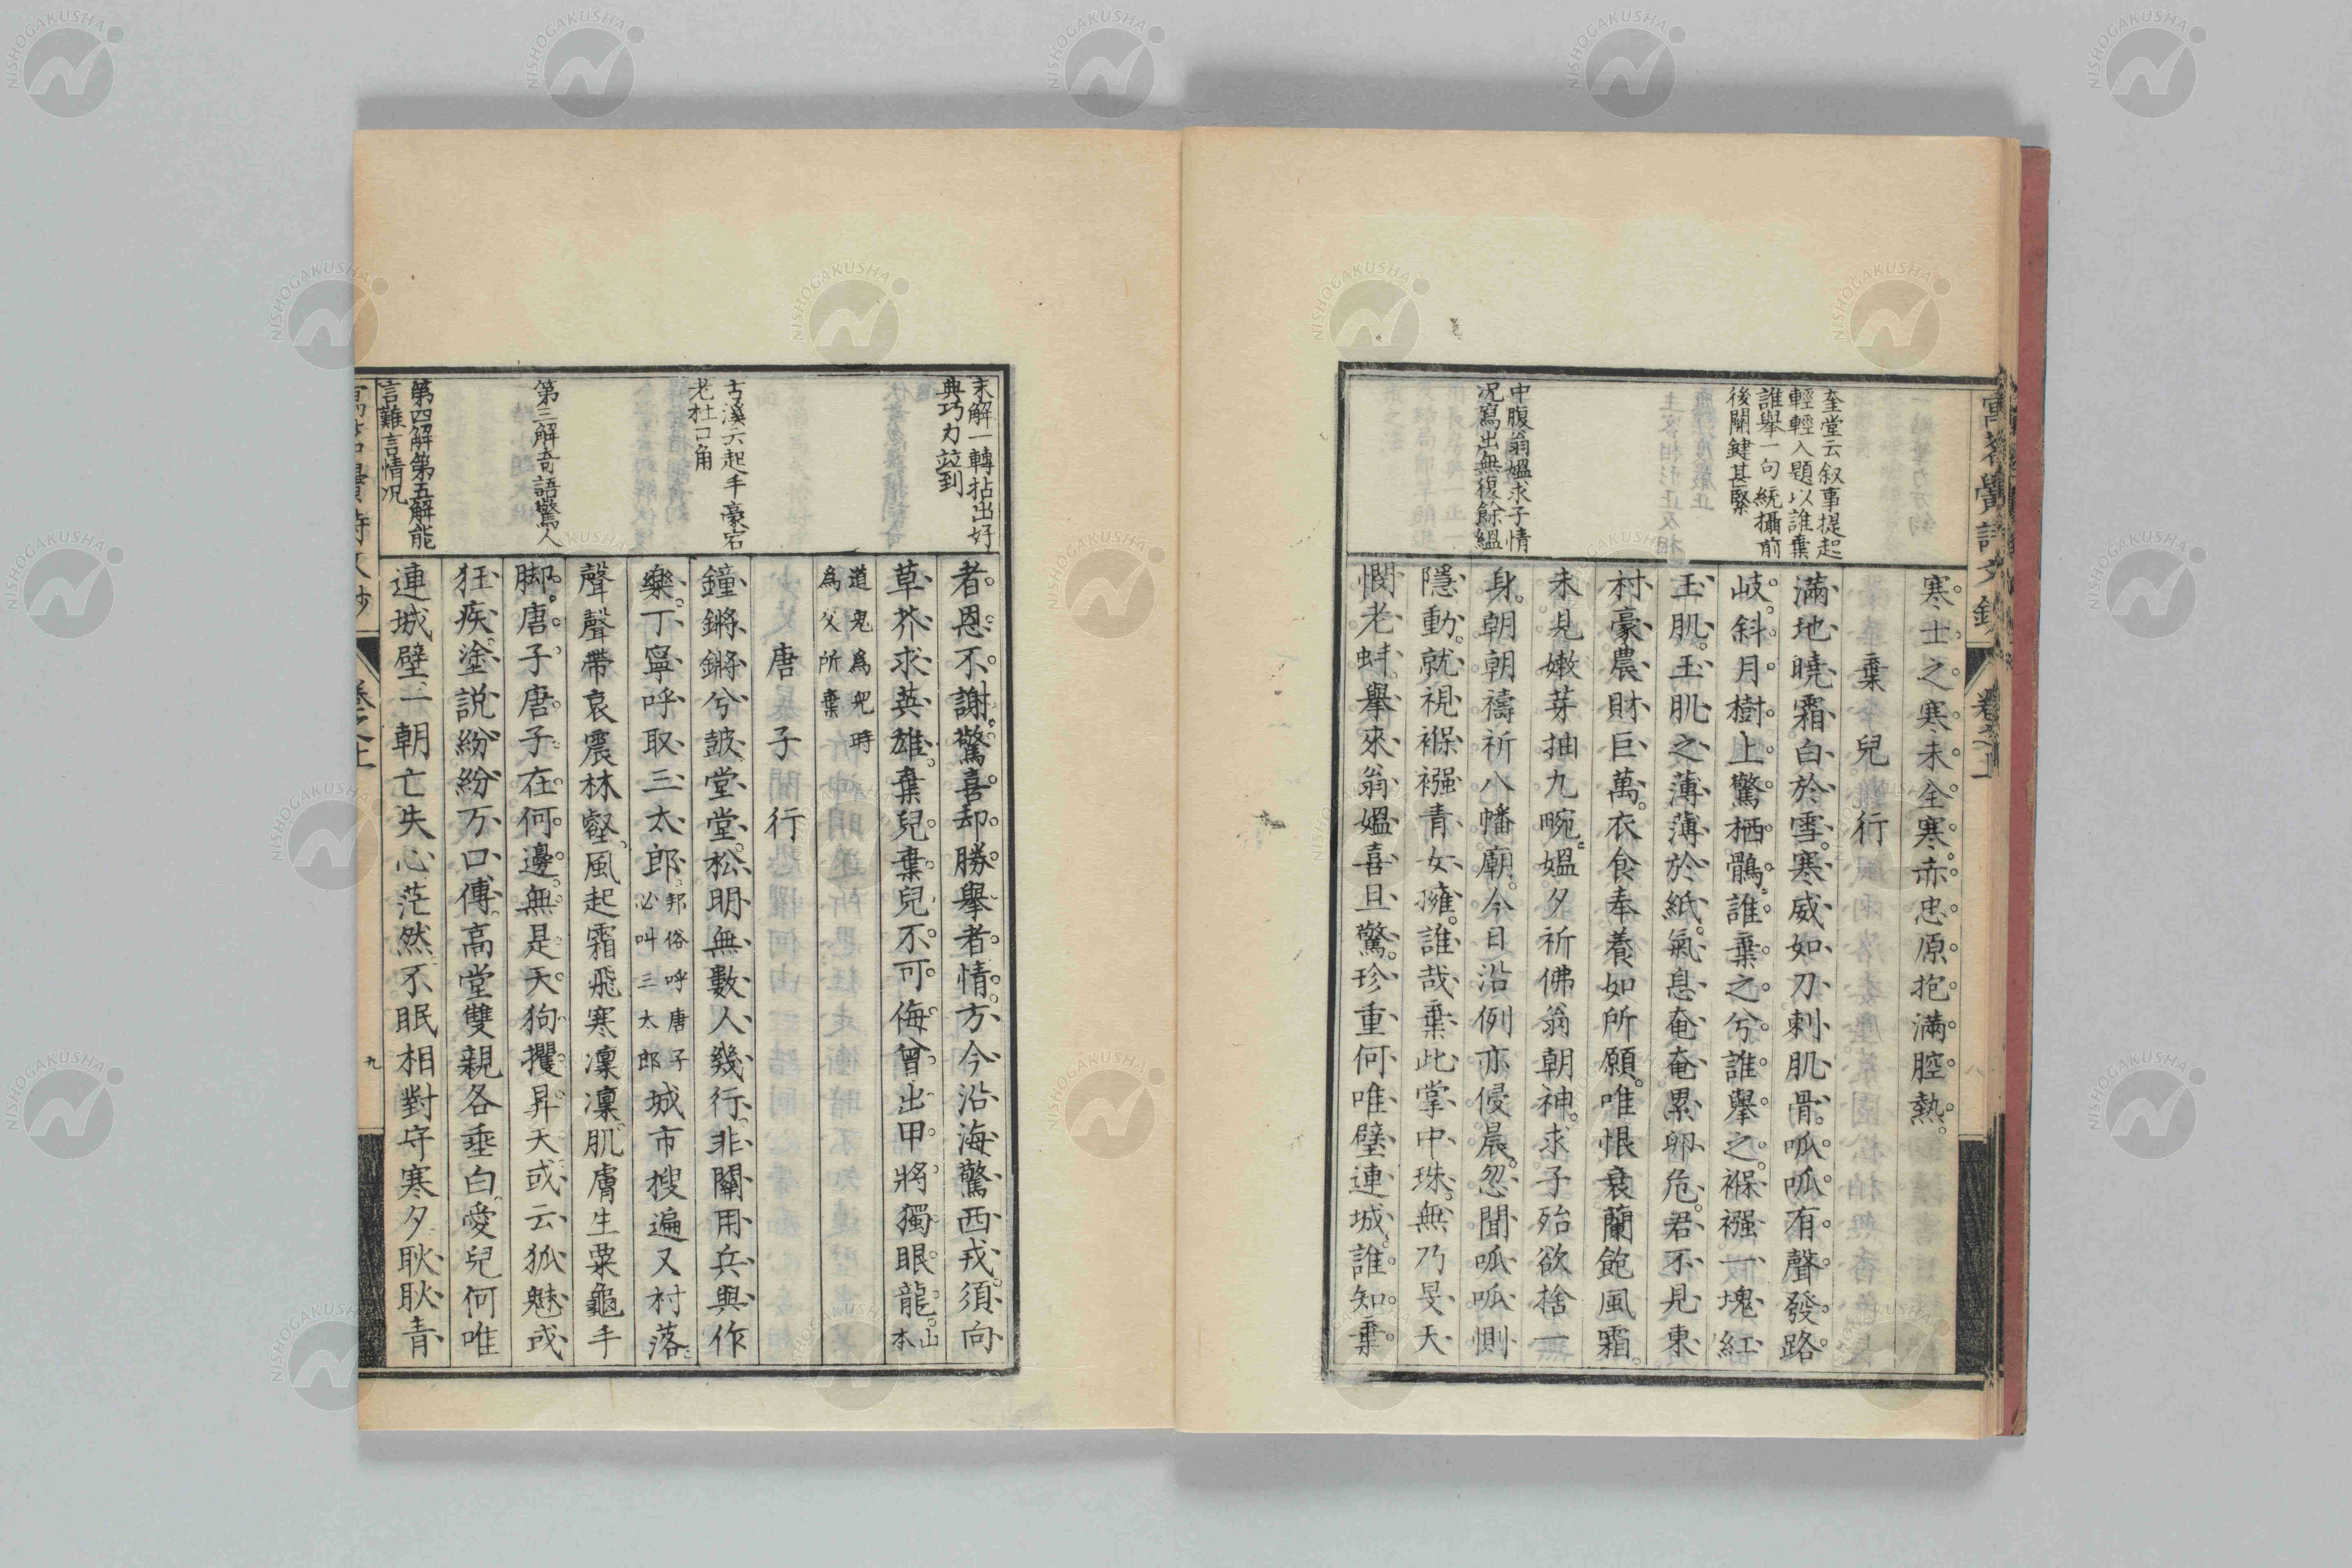 奎堂云叙事提起
輕輕入題以誰棄
誰舉一句統攝前
後關鍵甚緊
中腹翁媼求子情
况寫出無復餘緼
寒士之寒未全寒。赤忠原抱滿腔熱。
棄兒行
滿地曉霜白於雪。寒威如刀刺肌骨。呱呱呱有聲發路
岐。斜月樹上驚栖鶻。誰棄之兮誰舉之。褓襁一塊紅
玉肌。玉肌之薄薄於紙。氣息奄奄累卵危。君不見東
村豪農財巨萬。衣食奉養如所願。唯恨衰蘭飽風霜。
未見嫩芽抽九畹。媼夕祈佛翁朝神。求子殆欲捨一
身。朝朝禱祈八幡廟。今日沿例亦侵晨。忽聞呱呱惻
隱動。就視褓襁青女擁。誰哉棄此掌中珠。無乃旻天
憫老蚌。舉來翁媼喜且驚。珍重何唯璧連城。誰知棄
末解一轉拈出好
典巧力竝到
古溪云起手豪宕
老杜口角
第三解奇語驚人
第四解第五解能
言難言情况
者恩不謝。驚喜却勝舉者情。方今沿海驚西戎。須向
草芥求英雄。棄兒棄兒不可侮。曾出甲將獨眼龍。山本
道鬼爲兒時
爲父所棄
唐子行
鐘鏘鏘兮鼓堂堂。松明無數人幾行。非關用兵興作
樂。丁寧呼取三太郎。邦俗呼唐子必叫三太郎城市搜遍又村落。
聲聲帶哀震林壑。風起霜飛寒凜凜。肌膚生粟龜手
脚。唐子唐子在何邊。無是天狗攫昇天。或云狐魅或
狂疾。塗説紛紛万口傳。高堂雙親各垂白。愛兒何唯
連城璧。一朝亡失心茫然。不眠相對守寒夕。耿耿青
卷之上
九